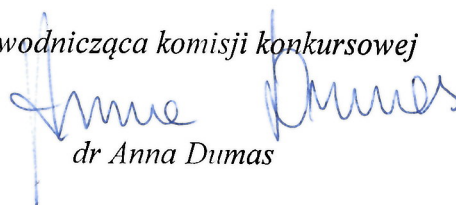 wodnicząca komisji konkursowej
Anna Dumas
dr Anna Dumas